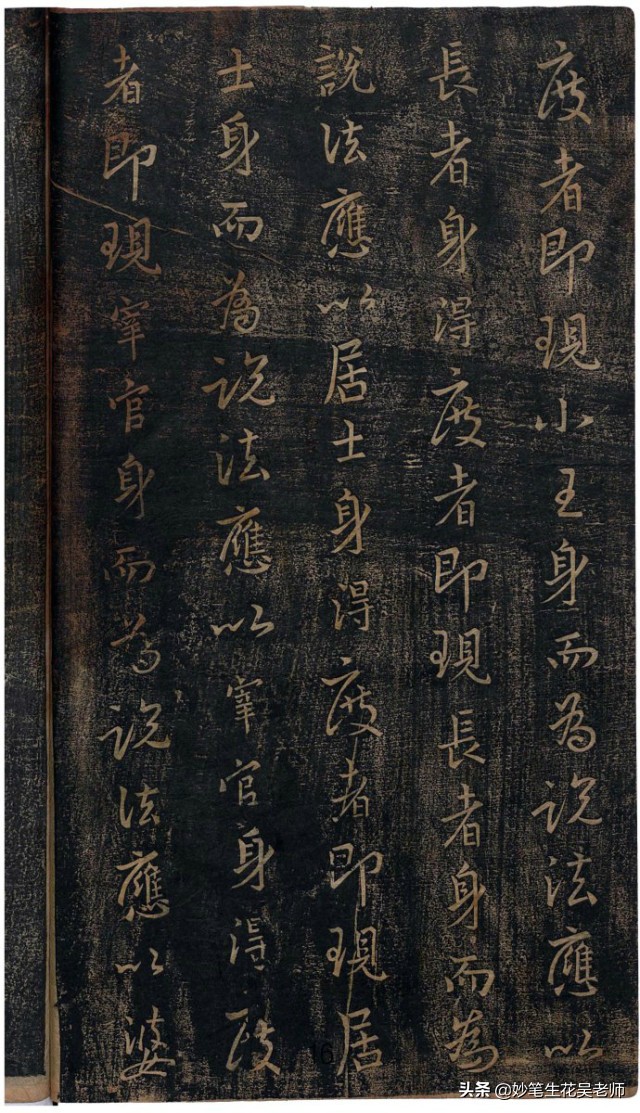 度者即現小王身而為説法應以
長者身得度者即現長者身而為
説法應以居士身得度者即現居
士身而為説法應以宰官身得度
者即現宰官身而為説法應以婆
16
头条 @妙笔生花吴老师